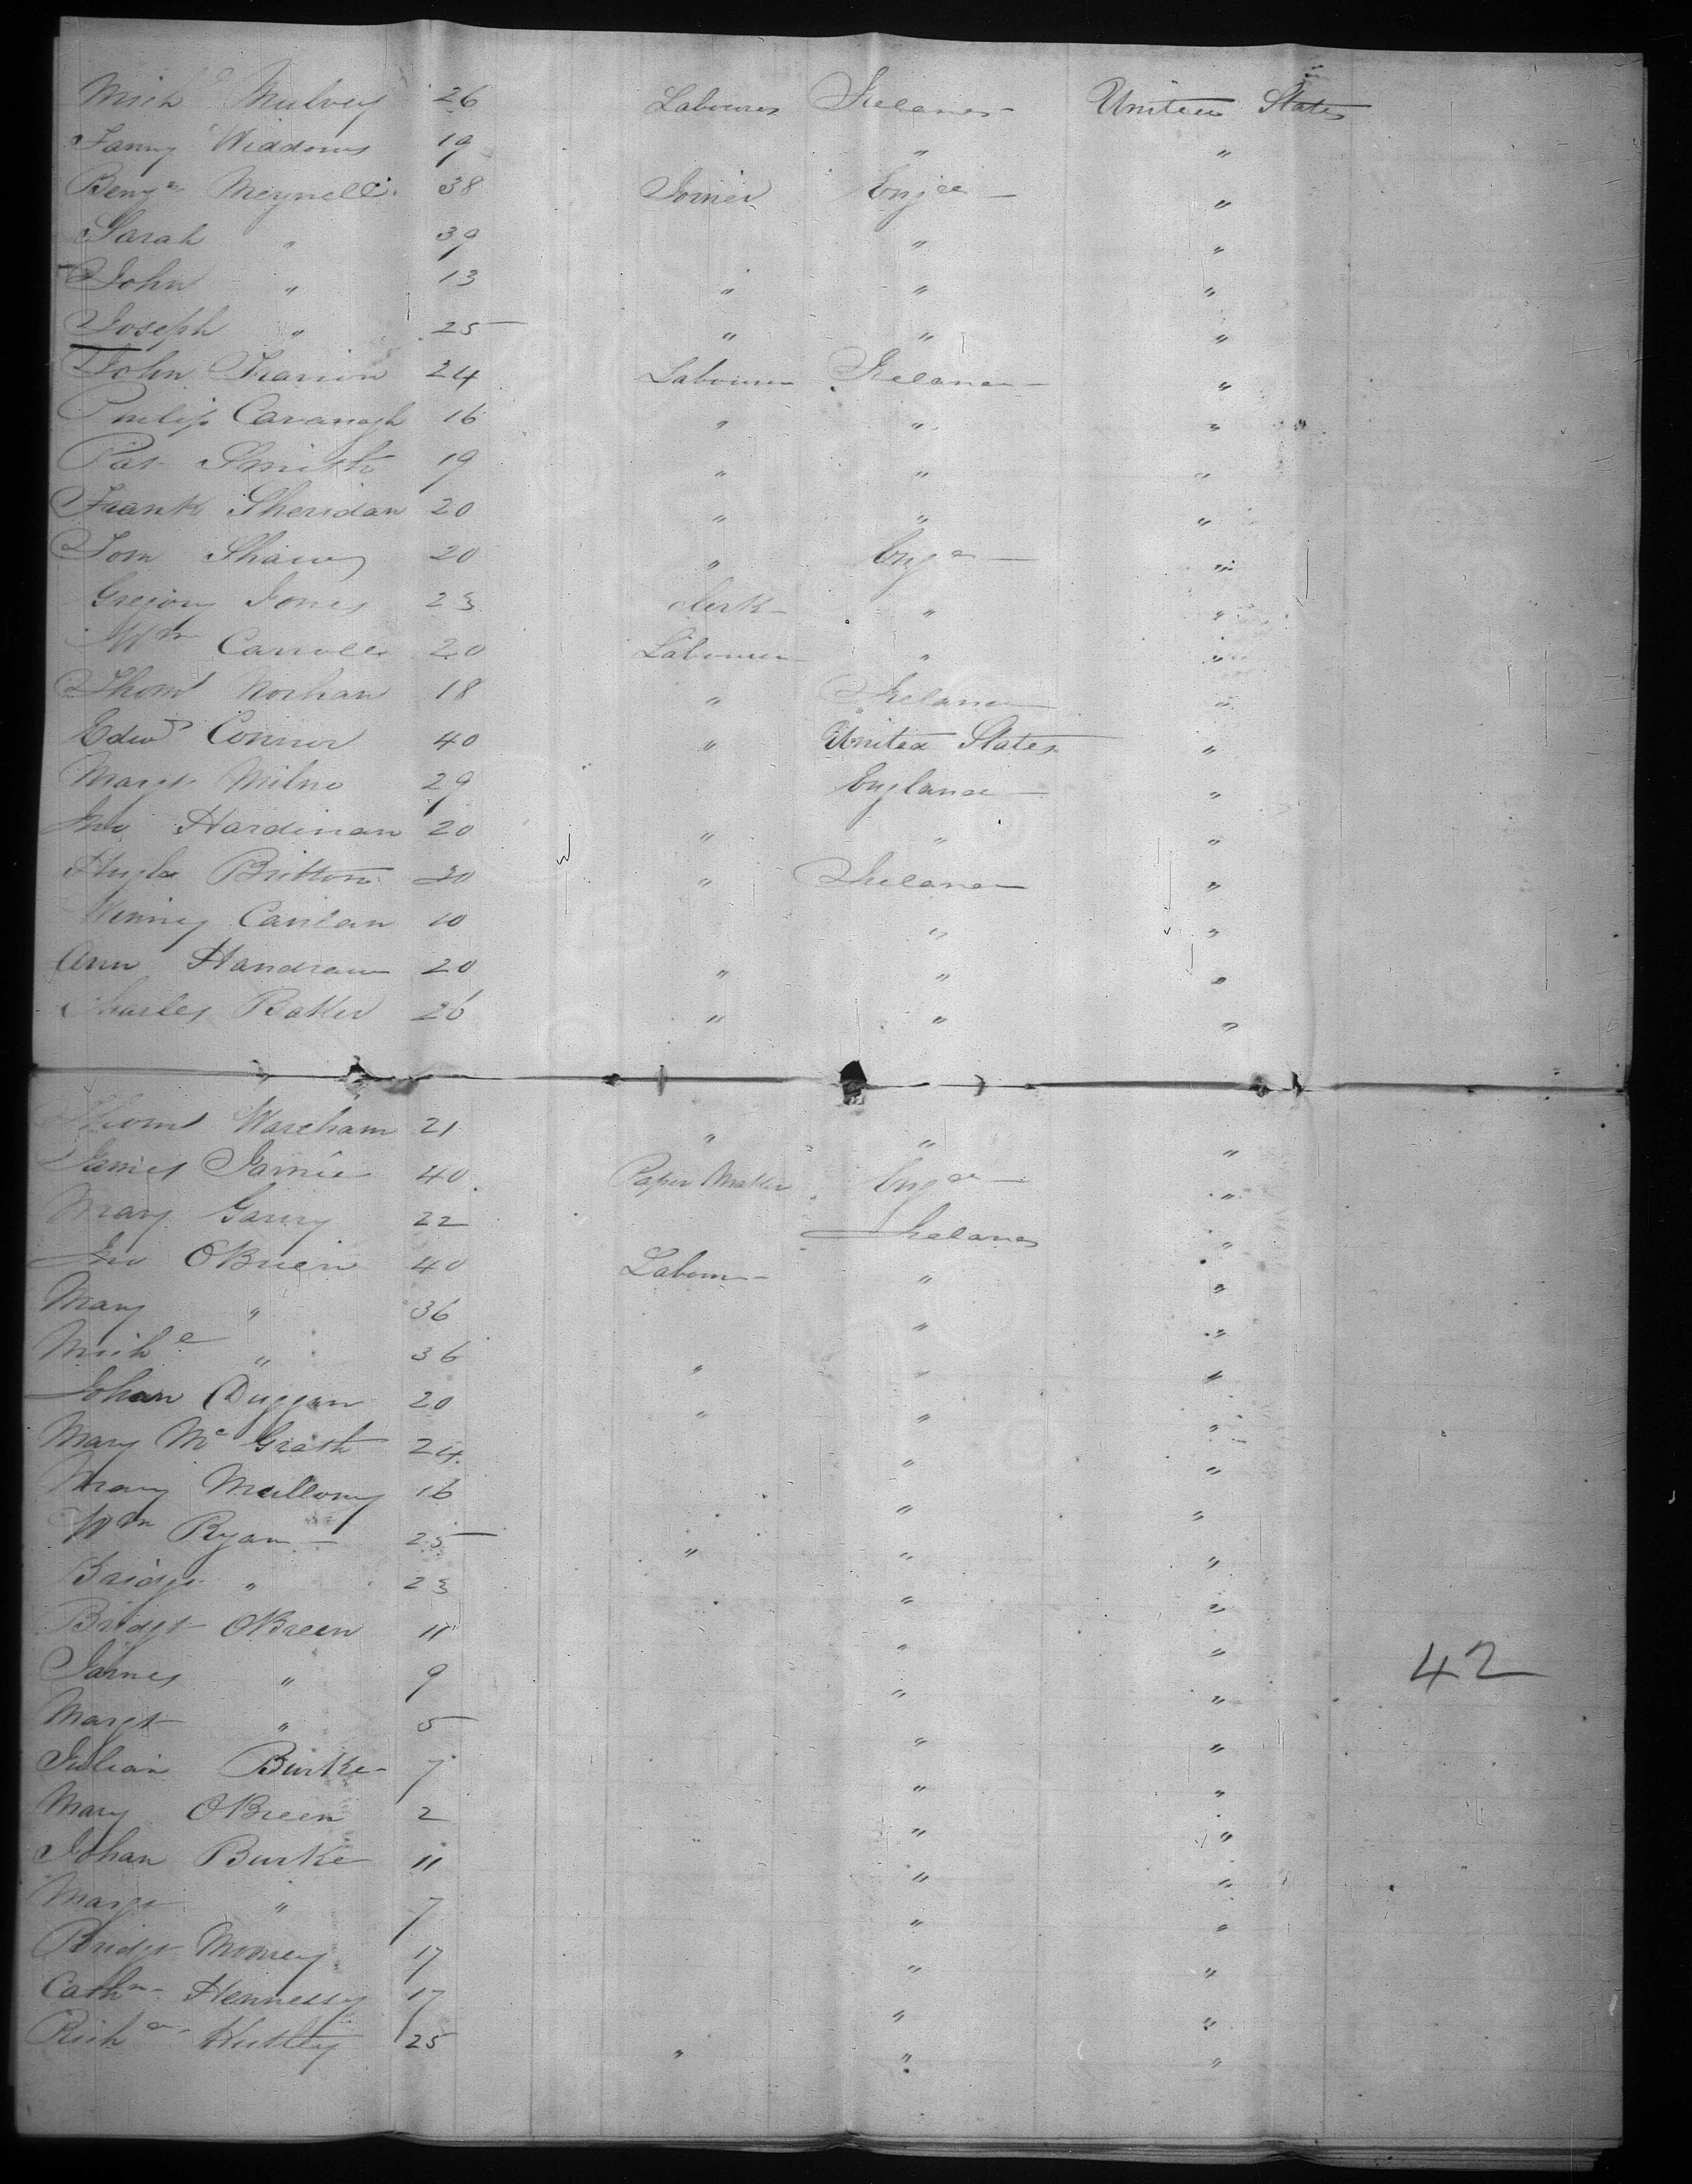 Mich Mulvey 26 Labourer Ireland United States
Fanny Widdows 19 " "
Benjn Meynell 38 Joiner Engd "
Sarah " 39 " "
John " 13 " " "
Joseph " 25 " " "
John 24 Labourer Ireland "
Philip Cavanagh 16 " " "
Pat Smith 19 " " "
Frank Sheridan 20 " " "
Tom Shaw 20 " Engd "
Gregory Jones 23 Clerk " "
Wm Carroll 20 Labourer " "
Thoms 18 " Ireland "
Edwd Connor 40 " United States "
Margt Milne 29 England "
Jno Hardiman 20 " " "
Hugh Britton 30 " Ireland "
Winney Canlan 10 " "
Ann 20 " " "
Charles Baker 26 " " "
Thoms Wareham 21 " " "
James Jamie 40 Paper Maker Engd "
Mary Garry 22 Ireland "
Jno OBrien 40 Labour "
Mary " 36 " "
Michl " 36 " " "
Johan Duggan 20 " " "
Mary Mc Grath 24 " "
Mary Mullowny 16 " "
Wm Ryan 25 " " "
Bridgt " 23 " "
Bridgt OBreen 11 " "
James " 9 " "
Margt " 5 " "
Julian Burke 7 " "
Mary OBreen 2 " "
Johan Burke 11 " "
Margt " 7 " "
Bridgt 17 " "
Cathn Hennessy 17 " "
Richd 25 " " "
42